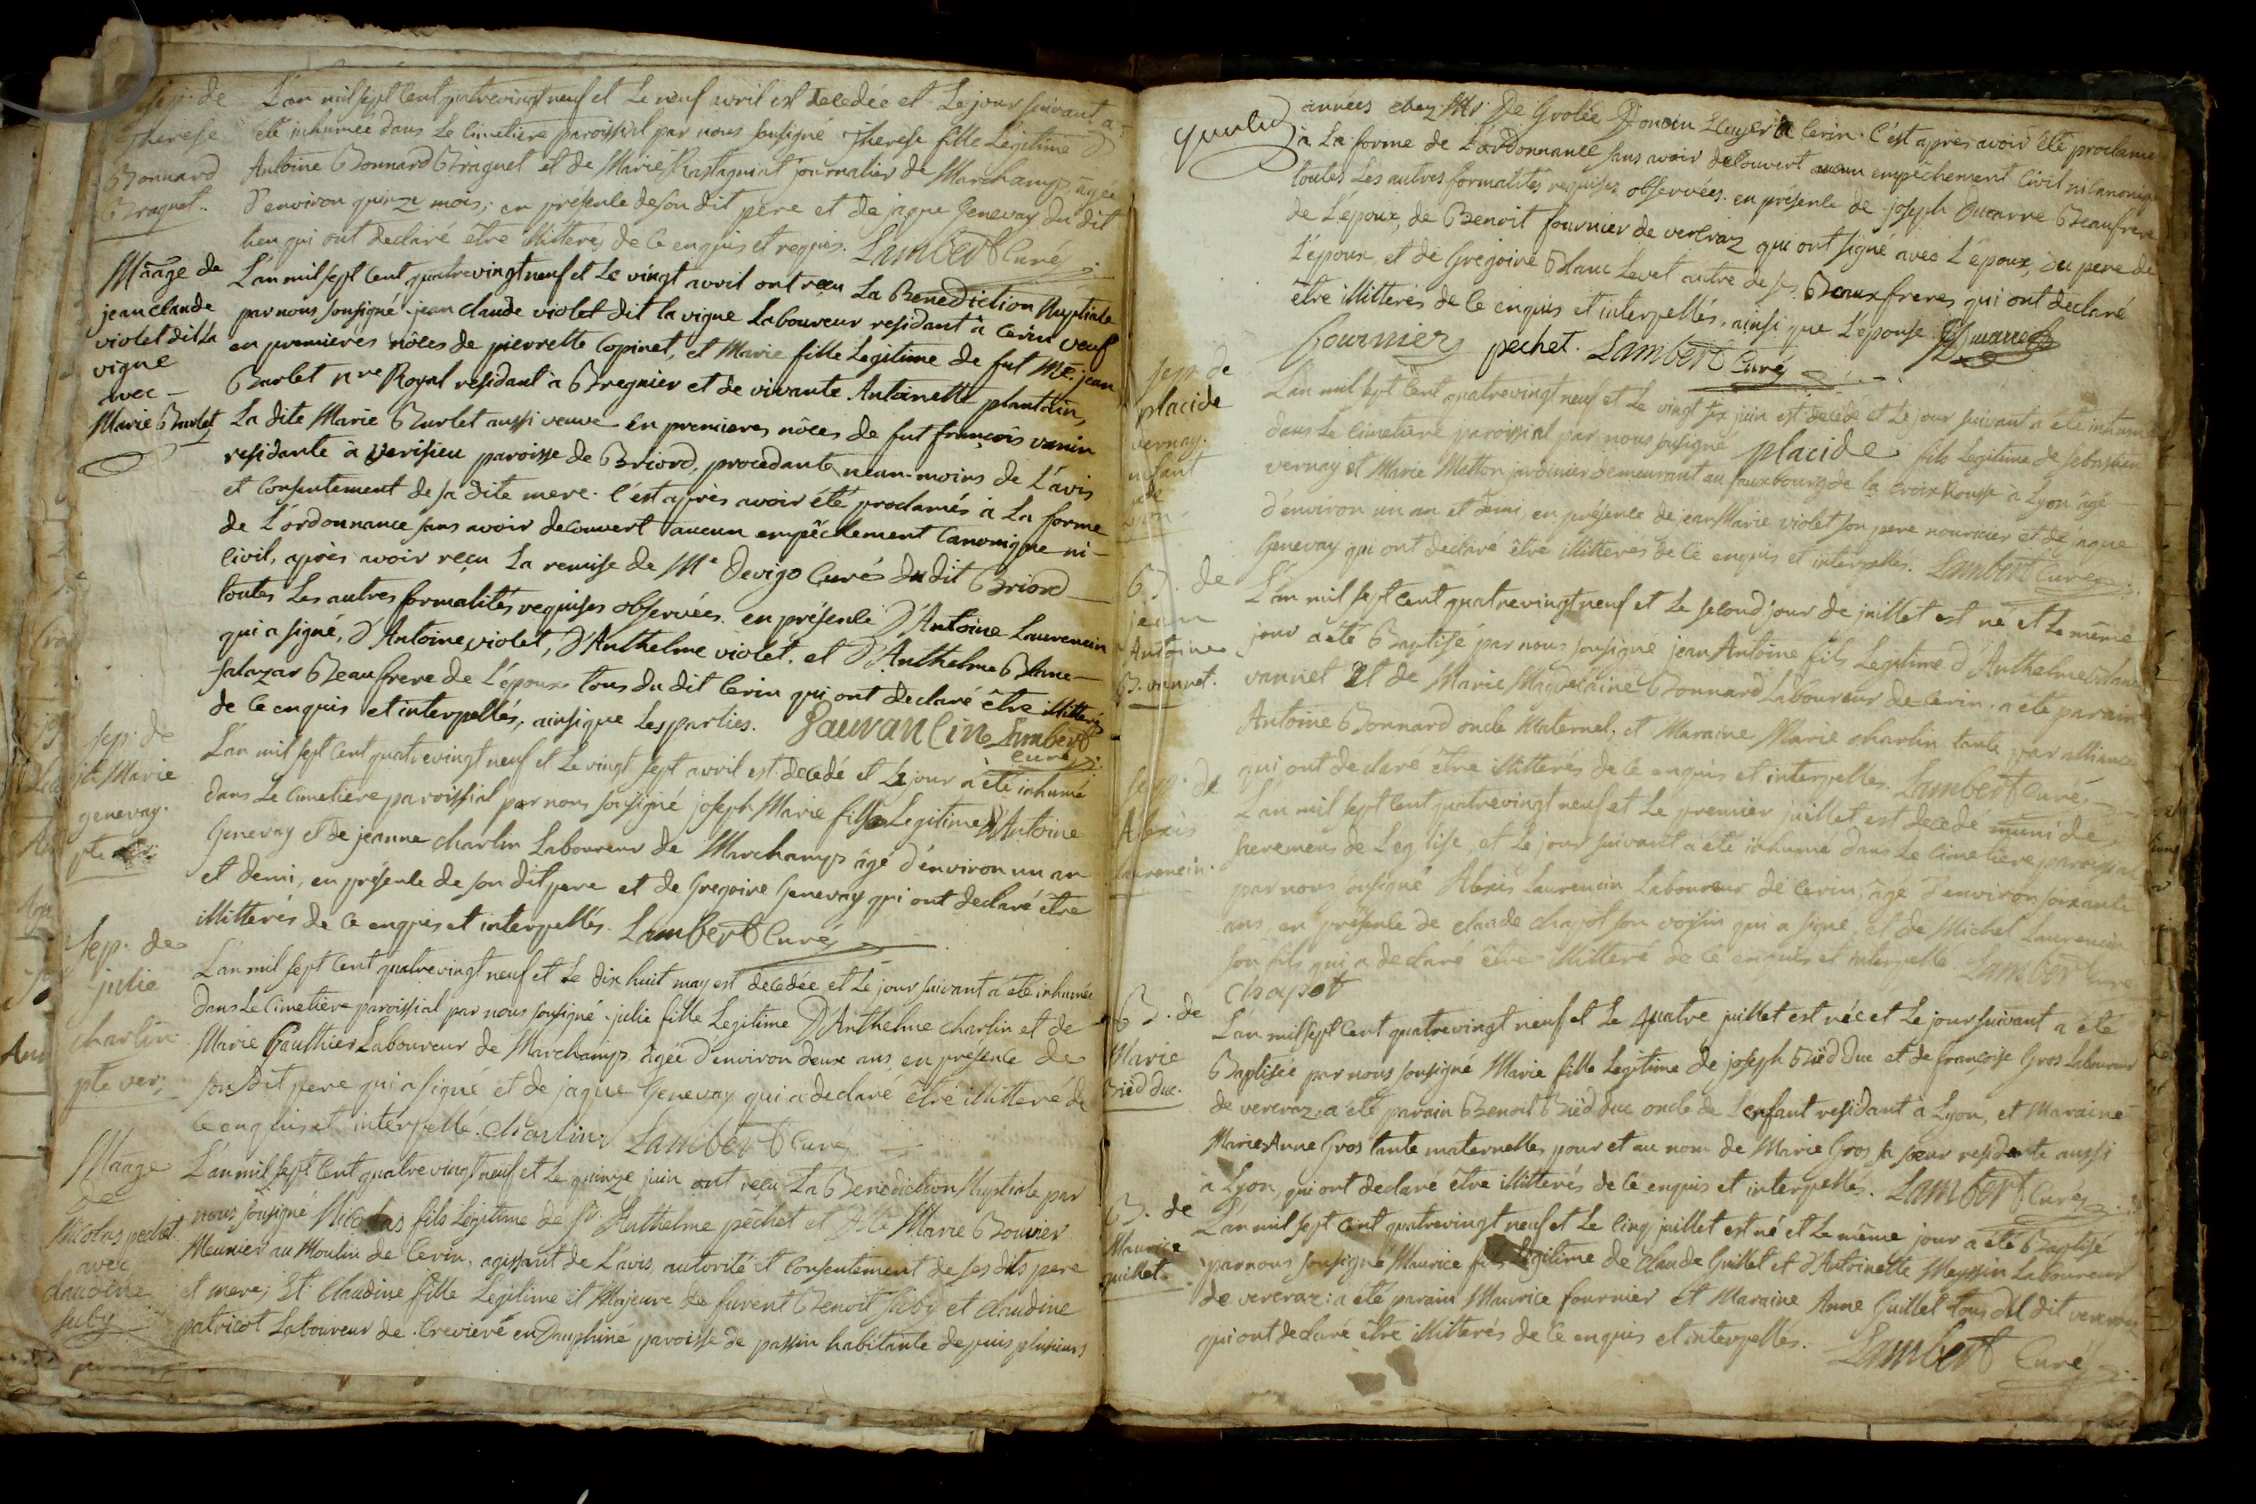 Sep. de
Therese
Bonnard
Braguet.
L'an mil sept cent quatrevingt neuf et le neuf avril est decedée et le jour suivant a
été inhumée dans le cimetiere paroissial par nous soussigné Therese fille Legitime d'
Antoine Bonnard Braguet et de Marie Rastagniat journalier de Marchamps âgée
d'environ quinze mois; en présence de son dit père et de jaque Genevay du dit
lieu qui ont declaré être illitteré de ce enquis et requis. Lambert Curé
Mãage de
jean claude
violet dit La
vigne
avec -
Marie Burlet
L'an mil sept cent quatrevingt neuf et Le vingt avril ont reçu La Benediction Nuptiale
par nous sousigné jean claude violet dit la vigne Laboureur residant à Cerin veuf
en premieres nôces de pierrette Copinet, et Marie fille Legitime de fut Me. jean
Burlet Nre Royal residant à Bregnier et de vivante Antoinette plantin,
La dite Marie Burlet aussi veuve en premieres nôces de fut françois vanin
residante à Verisieu paroisse de Briord, procedante nean-moins de L'avis
et Consentement de sa dite mere. C'est après avoir été proclamés à La forme
de L'ordonnance sans avoir decouvert aucun empêchement Canonique ni-
Civil, après avoir reçu La remise de Me Devigo Curés du dit Briord
toutes Les autres formalités requises observées. en présence D'Antoine Laurencin
qui a signé, D'Antoine violet, D'Anthelme violet. et D'Anthelme Blanc-
salazar Beaufrere de L'époux tous du dit Cerin qui ont declaré être illitterés
de Ce enquis et interpellés, ainsi que Les parties. Lauran Cin Lambert
Curé
Sep. de
jh. Marie
genevay.
pte
L'an mil sept cent quatrevingt neuf et Le vingt sept avril est decedé et le jour a été inhumé
dans Le Cimetiere paroissial par nous sousigné joseph Marie fils Legitime D'Antoine
Genevay et de jeanne charlin Laboureur de Marchamps âgé d'environ un an
et demi, en présence de son dit pere et de Gregoire Genevay qui ont declaré être
illitterés de Ce enquis et interpellés. Lambert Curé
Sep. de
julie
charlin
pte ver;
L'an mil sept cent quatrevingt neuf et Le dix huit may est decedée et Le jour suivant a été inhumée
dans Le Cimetiere paroissial par nous sousigné julie fille Legitime D'Anthelme charlin et de
Marie Gauthier Laboureur de Marchamps âgée d'environ deux ans en présence de
son dit pere qui a signé et de jaque Genevay qui a declaré être illitteré de
Ce enquis et interpellé. Charlin Lambert Curé
Mãage
de
Nicolas pechet.
avec
claudine
suby
L'an mil sept Cent quatrevingt neuf et Le quinze juin ont reçu La Benediction Nuptiale par
nous sousigné Nicolas fils Legitime de Sr. Anthelme pêchet et Dlle Marie Bouvier
Meunier au Moulin de Cerin, agissant de L'avis, autorité et Consentement de ses dits pere
et mere; Et Claudine fille Legitime et Majeure de furent Benoit Suby et claudine
patricot Laboureur de Crevieré en Dauphiné paroisse de passin habitante depuis plusieurs
années chez Mr. De Grolée Donoin Ecuyer à Cerin. C'est après avoir été proclamé
à La forme de L'ordonnance sans avoir decouvert aucun empêchement Civil ni Canonique
toutes Les autres formalités requises observées. en présence de joseph Ducarre Beaufrere
de L'époux, de Benoit fournier de vercraz qui ont signé avec L'époux, du pere de
L'époux, et de Gregoire Blanc Levet autre de ses Beauxfreres qui ont declaré
être illitterés de Ce enquis et interpellés, ainsi que L'épouse. Ducarre
fournier pechet. Lambert Curé
Sep. de
placide
vernay.
enfant
de
Lyon.
L'an mil sept Cent quatrevingt neuf et Le vingt six juin est decedé et Le jour suivant a été inhumé
dans Le Cimetiere paroissial par nous sousigné placide fils Legitime de sebastien
vernay et Marie Matton jardinier demeurant au fauxbourg de la Croix Rousse à Lyon âgé
d'environ un an et demi, en présence de jean Marie violet son pere nourricier et de jaque
Genevay qui ont declaré être illitterés de Ce enquis et interpellés. Lambert Curé
B. de
jean
Antoine
B. vannet.
L'an mil sept Cent quatrevingt neuf et Le second jour de juillet est né et Le même
jour a été Baptisé par nous sousigné jean Antoine fils Legitime d'Anthelme Blanc
vannet Et de Marie Magdelaine Bonnard Laboureur de Cerin. a été parain
Antoine Bonnard oncle Maternel; et Maraine Marie charlin tante par alliance
qui ont declaré être illitterés de Ce enquis et interpellés. Lambert Curé.
Sep. de
Alexis
Laurencin.
L'an mil sept Cent quatrevingt neuf et Le premier juillet est decedé muni de
sacremens de L'eglise, et Le jour suivant a été inhumé dans Le Cimetiere paroissial
par nous sousigné Alexis Laurencin Laboureur de Cerin, âgé d'environ soixante
ans, en présence de claude chapot son voisin qui a signé, et de Michel Laurencin
son fils qui a declaré être illitteré de Ce enquis et interpellé Lambert Curé
Chapot
B. de
Marie
Bied duc.
L'an mil sept Cent quatrevingt neuf et Le quatre juillet est née et Le jour suivant a été
Baptisée par nous sousigné Marie fille Legitime de joseph Bied Duc et de françoise Gros Laboureur
de vercraz: a été parain Benoit Bied duc oncle de L'enfant residant à Lyon, et Maraine
Marie Anne Gros tante maternelle, pour et au nom de Marie Gros sa soeur residente aussi
à Lyon, qui ont declaré être illitterés de Ce enquis et interpellés. Lambert Curé
B. de
Maurice
guillet.
L'an mil sept Cent quatrevingt neuf et Le Cinq juillet est né et Le même jour a été Baptisé
par nous sousigné Maurice fils Legitime de Claude Guillet et d'Antoinette Meyssin Laboureur
de vercraz: a été parain Maurice fournier et Maraine Anne Guillet tous du dit vercraz
qui ont declaré être illitterés de Ce enquis et interpellés. Lambert Curé